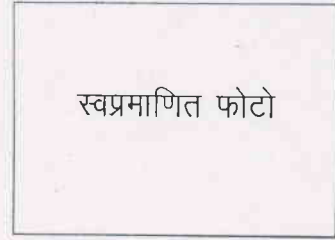 स्वप्रमाणित फोटो